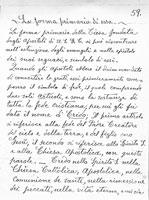 59.
La forma primaria di essa.
La forma primaria della Chiesa fondata
dagli Apostoli di N. S. G. C. si può riscontrare
nell'
degli evangeli e nelle epistole
dei suoi seguaci, e simbolo di essi.
Quando gli apostoli ebbero il
di convertire le genti, essi primieramente com-
posero il simbolo di fede, il quale comprende
dodici articoli, e sono la sostanza di
tutta la fede cristiana; per ciò gli fu
dato il nome di Credo. Il primo articolo
si riferisce alla fede del Padre Creatore
del cielo e della terra, e del figlio suo
Gesù, il secondo si riferisce allo Spirito S.
e alla Chiesa Apostolica, con queste
parole. – Credo nello Spirito S. nella
Chiesa Cattolica, Apostolica, nella
Comunione de' santi, nella remissione
dei peccati, nella vita eterna, e così sia